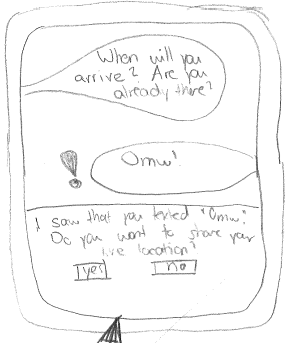 When will you
arrive? Are you
already there?
Omw!
!
I saw that you texted "Omw".
Do you want to share your
live location?
yes no